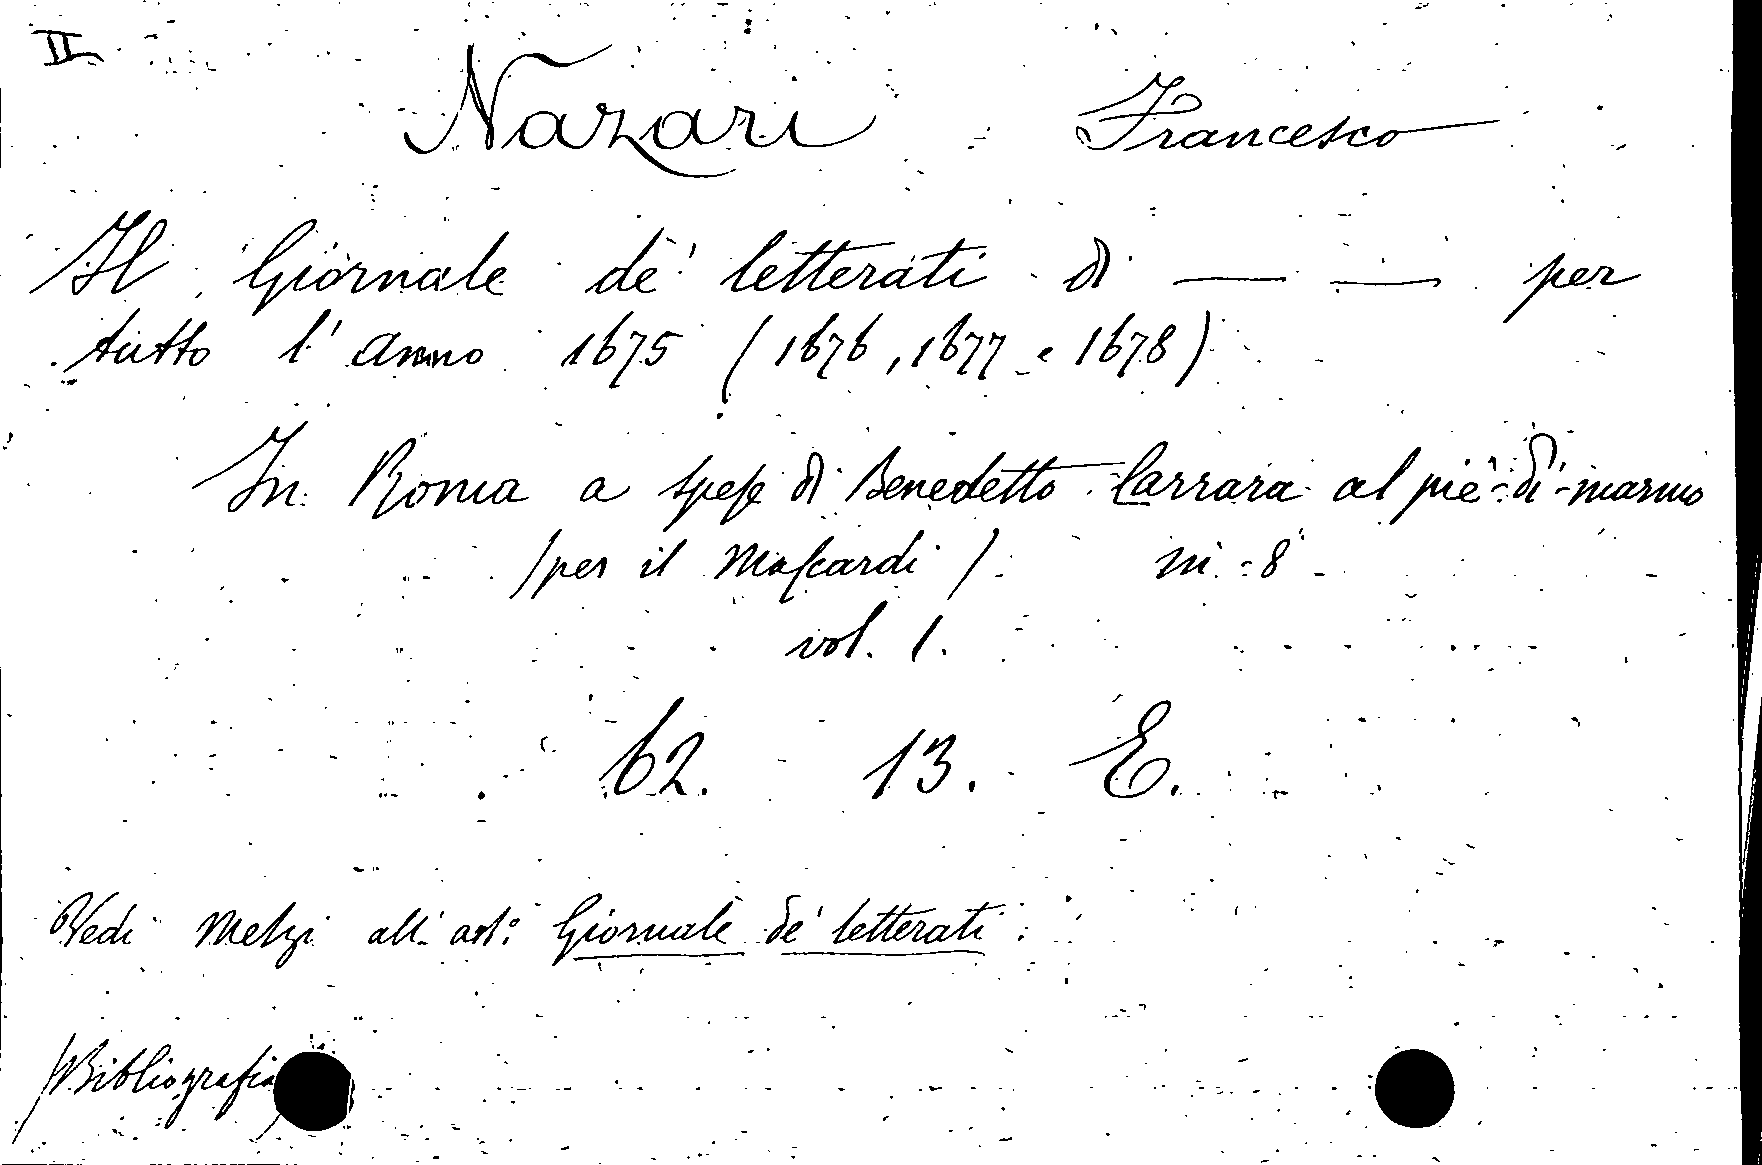 II
Nazari Francesco
Il Giornale de' letterati di — — per
tutto l'anno 1675 (1676, 1677 e 1678)
In Roma a speſe di Benedetto Carrara al piè-di-marmo
(per il Maſcardi) in-8°
vol. 1.
62. 13. E.
Vedi Melzi all'art.° Giornale de' letterati.
(Bibliografia)